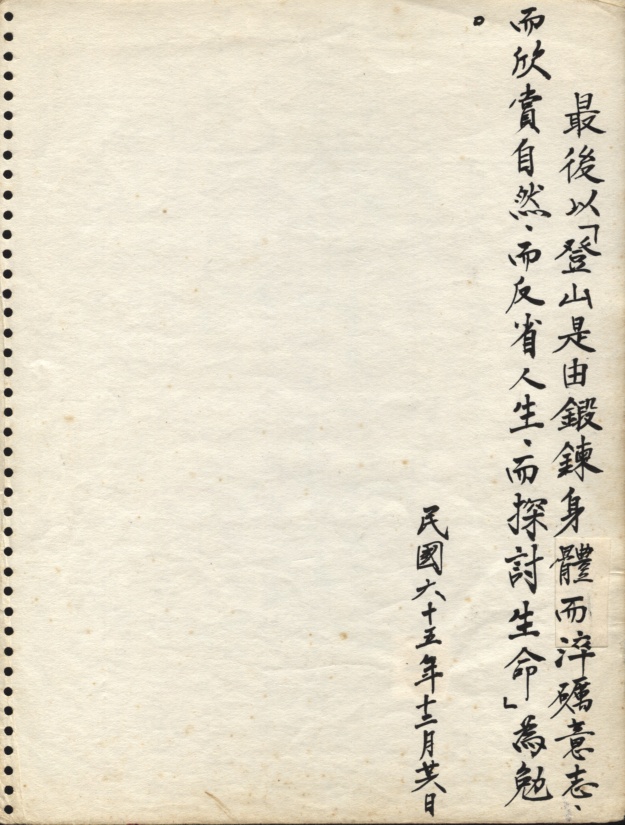 最後以「登山是由鍛鍊身體而淬礪意志、
而欣賞自然、而反省人生、而探討生命」為勉
。
民國六十五年十二月廿六日